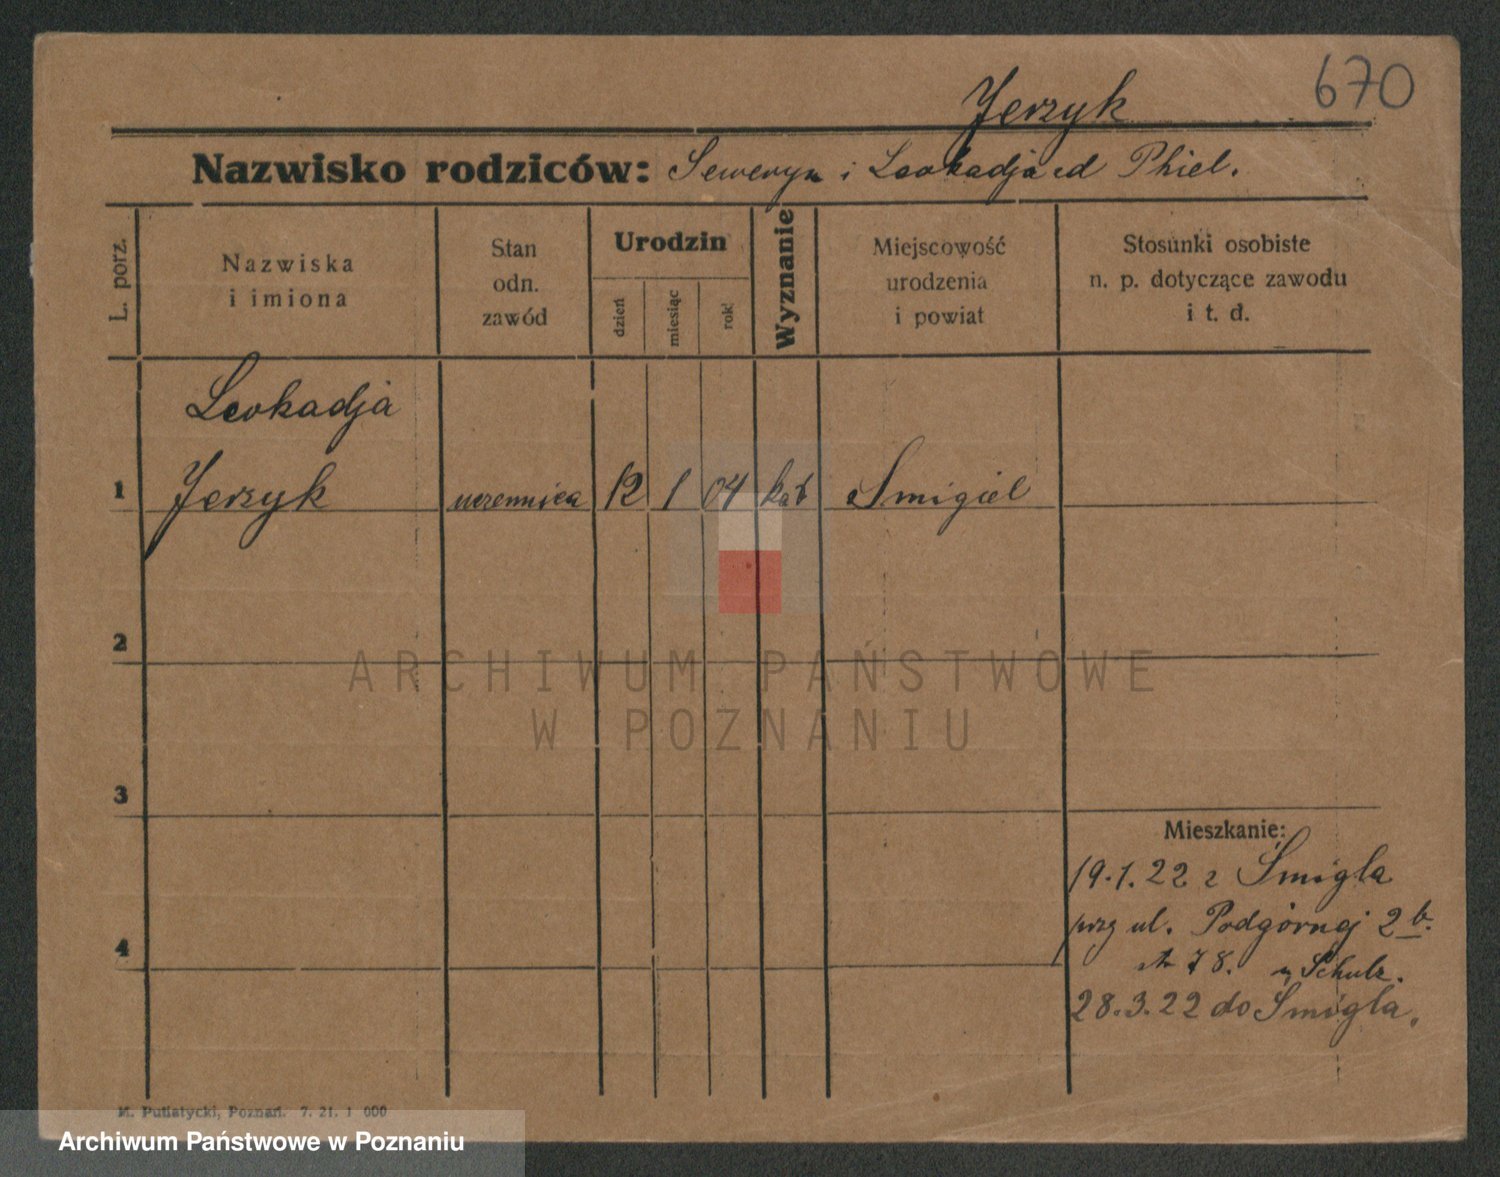 670
Jerzyk
Nazwisko rodziców: Seweryn i Leokadja Phiel.
L. porz.
Nazwiska
i imiona
Stan
odn.
zawód
Urodzin
dzień
miesiąc
rok
Wyznanie
Miejscowość
urodzenia
i powiat
Stosunki osobiste
n. p. dotyczące zawodu
i t. d.
Leokadja
1 Jerzyk uczennica 12 1 04 kat Smigiel
2
ARCHIWUM PAŃSTWOWE
W POZNANIU
3
Mieszkanie:
19.1.22 z Śmigla
przy ul. Podgórnej 2 b.
78. Schulz.
4
28.3.22 do Smigla.
M. Putiatycki, Poznań. 7. 21. 1 000
Archiwum Państwowe w Poznaniu